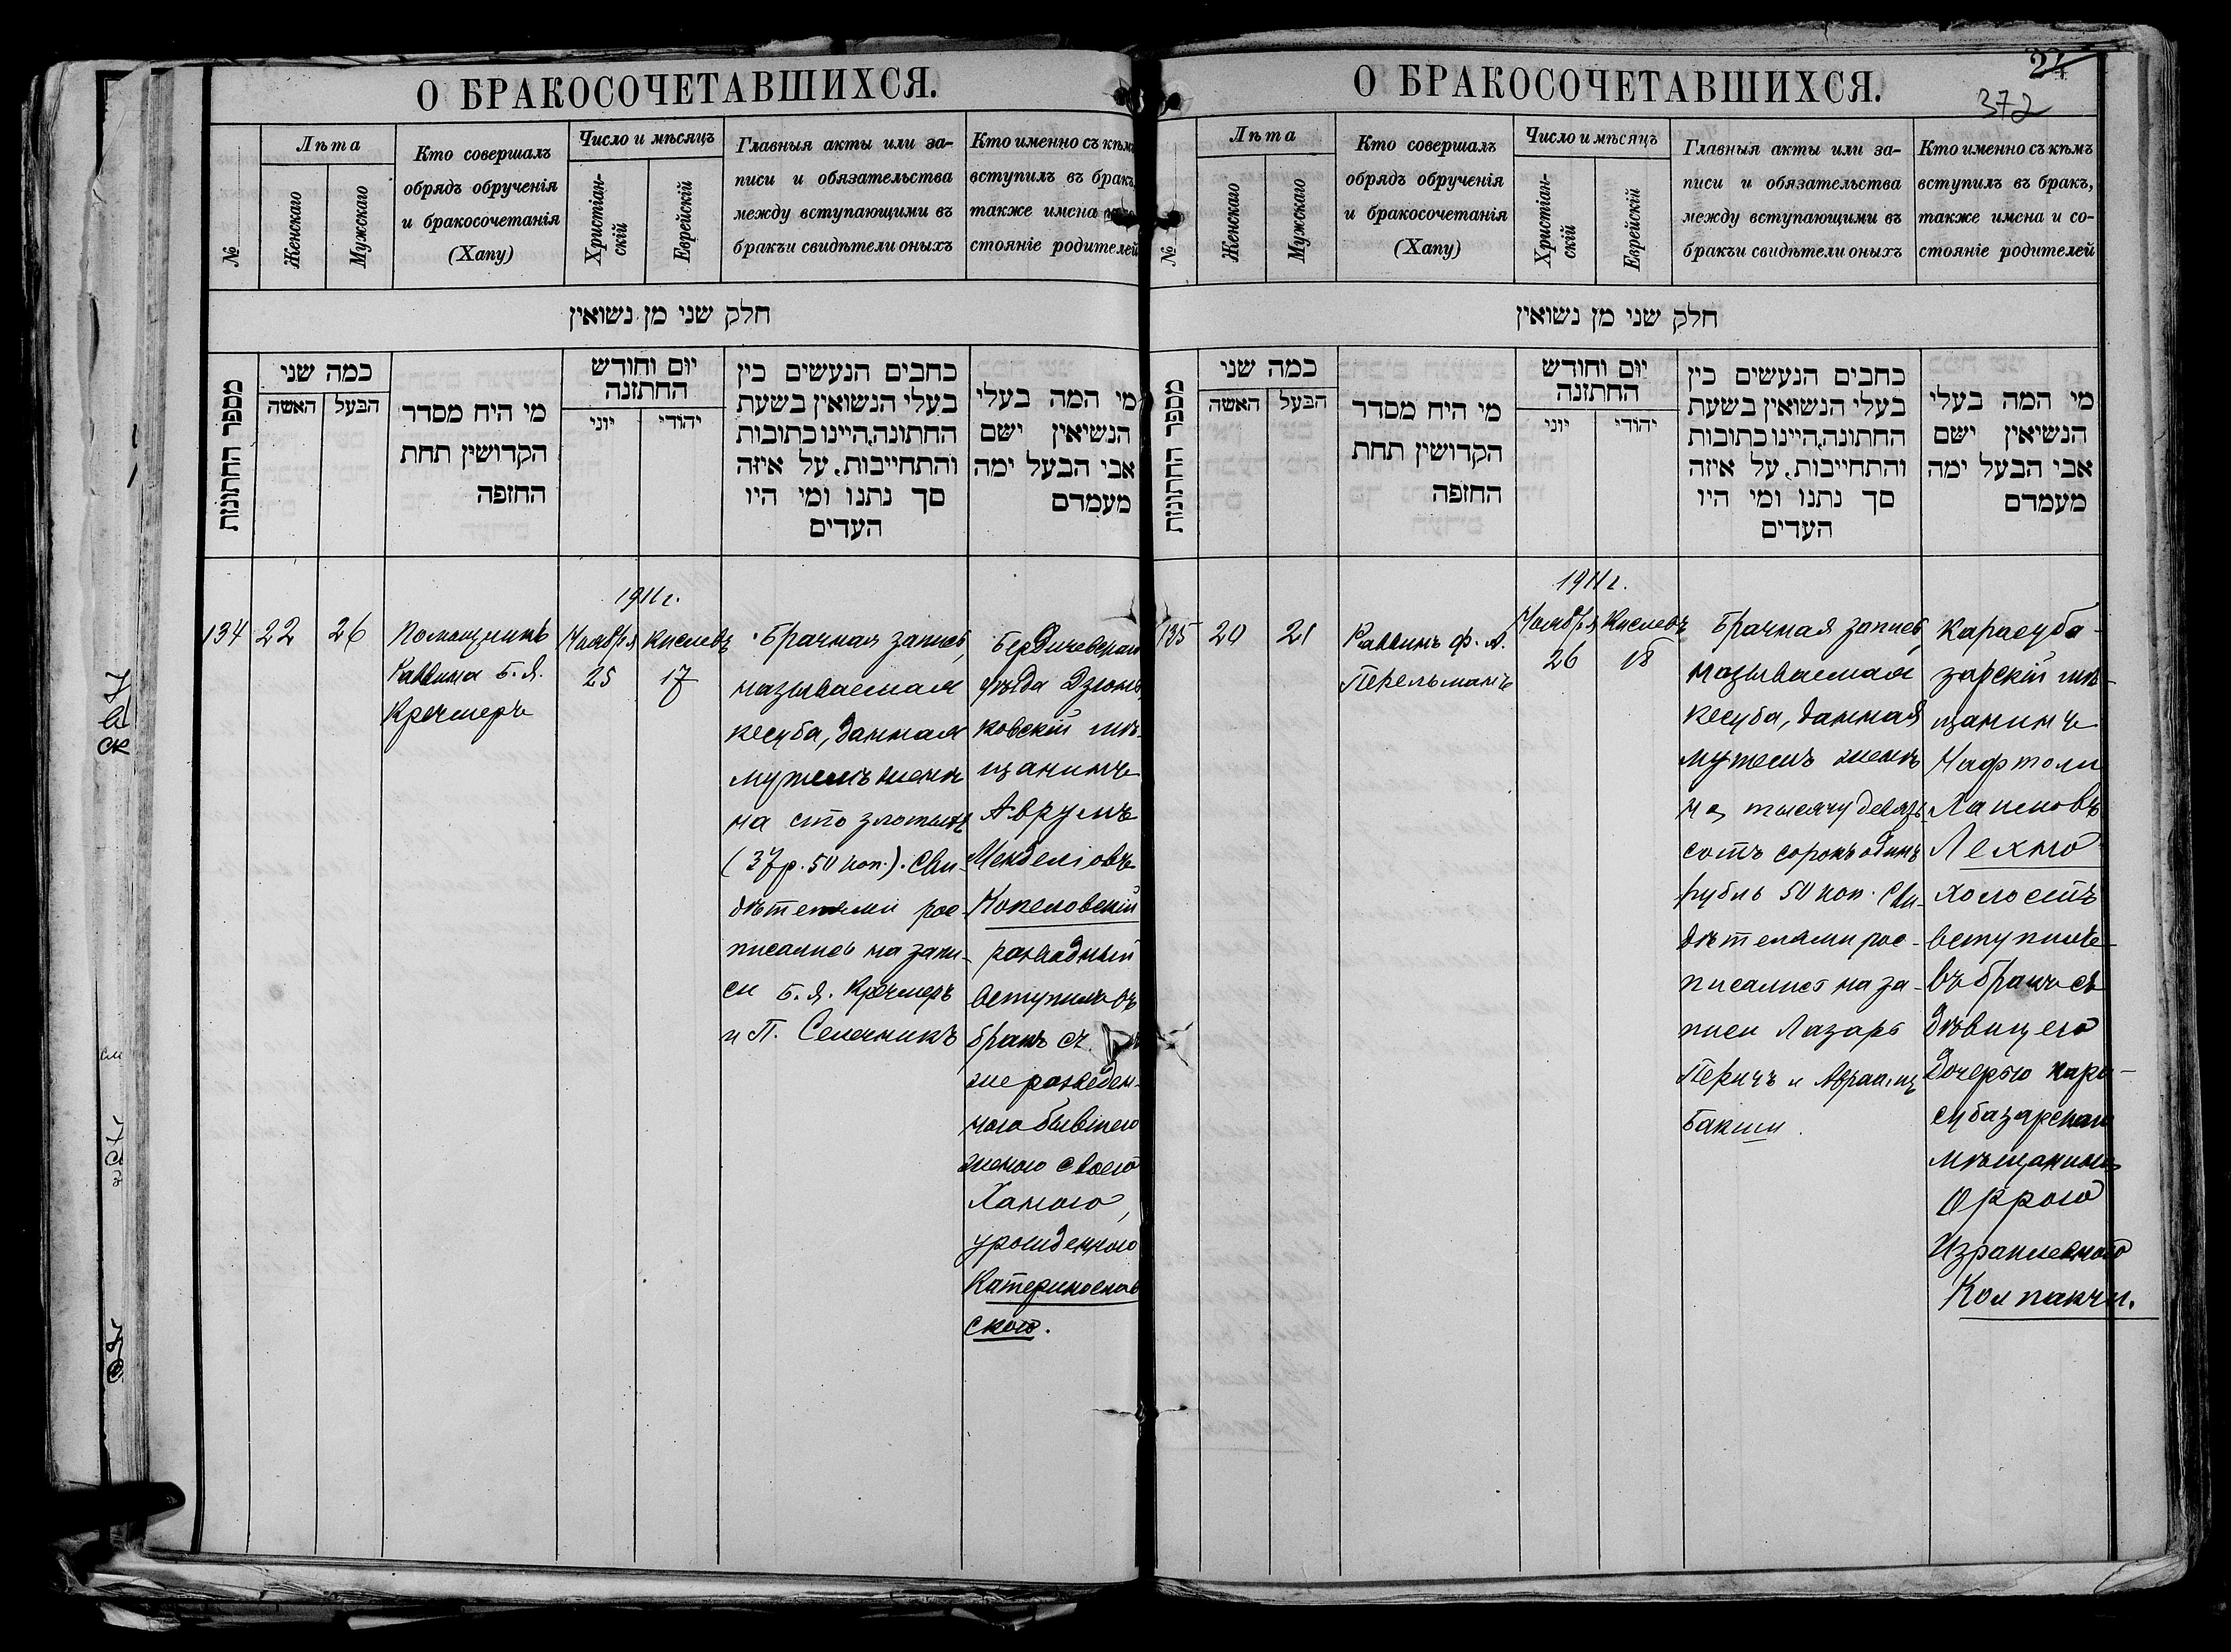 О БРАКОСОЧЕТАВШИХСЯ.
№
Лѣта
Женскаго
Мужскаго
Кто совершалъ
обрядъ обрученія
и бракосочетанія
(Хапу)
Число и мѣсяцъ
Христіан-
скій
Еврейскій
Главныя акты или за-
писи и обязательства
между вступающими въ
бракъи свидѣтели оныхъ
Кто именно съ кѣмъ
вступилъ въ бракъ,
также имена
стояніе родителей
חלק שני מן נשואין
מספר החתונות
כמה שני
האשה
הבעל
מי היח מסדר
הקדושין תחת
החופה
יום וחודש
החתונה
יוני
יהודי
כחבים הנעשים כין
בעלי הנשואין בשעת
החתונה,היינו כתובות
והתחייבות, על איזה
סך נתנו ומי היו
העדים
מי המה בעלי
הנשיאין ישם
אבי הבעל ימה
מעמדם
134
22
26
Помощникъ
Раввина Б. Я.
Кречмеръ
1911 г.
Ноября
25
Кислевъ
17
Брачная запись,
называемая
кесуба, данная
мужемъ женѣ
на сто злотыхъ
(37 р. 50 коп.). Сви-
дѣтелями рос-
писались на запи-
си Б. Я. Кречмеръ
и П. Селечникъ
Бердичевскаго
уѣзда Дзюнь
ковскій мѣ-
щанинъ
Аврумъ
Менделіовъ
Копеловскій
разводный
вступилъ въ
бракъ съ
же разведен-
ною бывшею
женою своею
Ханою,
урожденною
Катеринослав
скою.
О БРАКОСОЧЕТАВШИХСЯ.
24
372
№
Лѣта
Женскаго
Мужскаго
Кто совершалъ
обрядъ обрученія
и бракосочетанія
(Хапу)
Число и мѣсяцъ
Христіан-
скій
Еврейскій
Главныя акты или за-
писи и обязательства
между вступающими въ
бракъи свидѣтели оныхъ
Кто именно съ кѣмъ
вступилъ въ бракъ,
также имена и со-
стояніе родителей
חלק שני מן נשואין
מספר החתונות
כמה שני
האשה
הבעל
מי היח מסדר
הקדושין תחת
החופה
יום וחודש
החתונה
יוני
יהודי
כחבים הנעשים כין
בעלי הנשואין בשעת
החתונה,היינו כתובות
והתחייבות, על איזה
סך נתנו ומי היו
העדים
מי המה בעלי
הנשיאין ישם
אבי הבעל ימה
מעמדם
135
20
21
Раввинъ Ф. А.
Перельманъ
1911 г.
Ноября
26
Кислевъ
18
Брачная запись,
называемая
кесуба, данная
мужемъ женѣ
на тысячу девять-
сотъ сорокъ одинъ
рубль 50 коп. Сви-
дѣтелями рос-
писались на за-
писи Лазарь
Перичъ и Авраамъ
Бакши.
Карасуба-
зарскій мѣ-
щанинъ
Нафтоли
Хаимовъ
Лехно
холостъ
вступилъ
въ бракъ съ
дѣвицею
дочерью кара-
субазарскаго
мѣщанина
Оррою
Израилевною
Колпакчи.